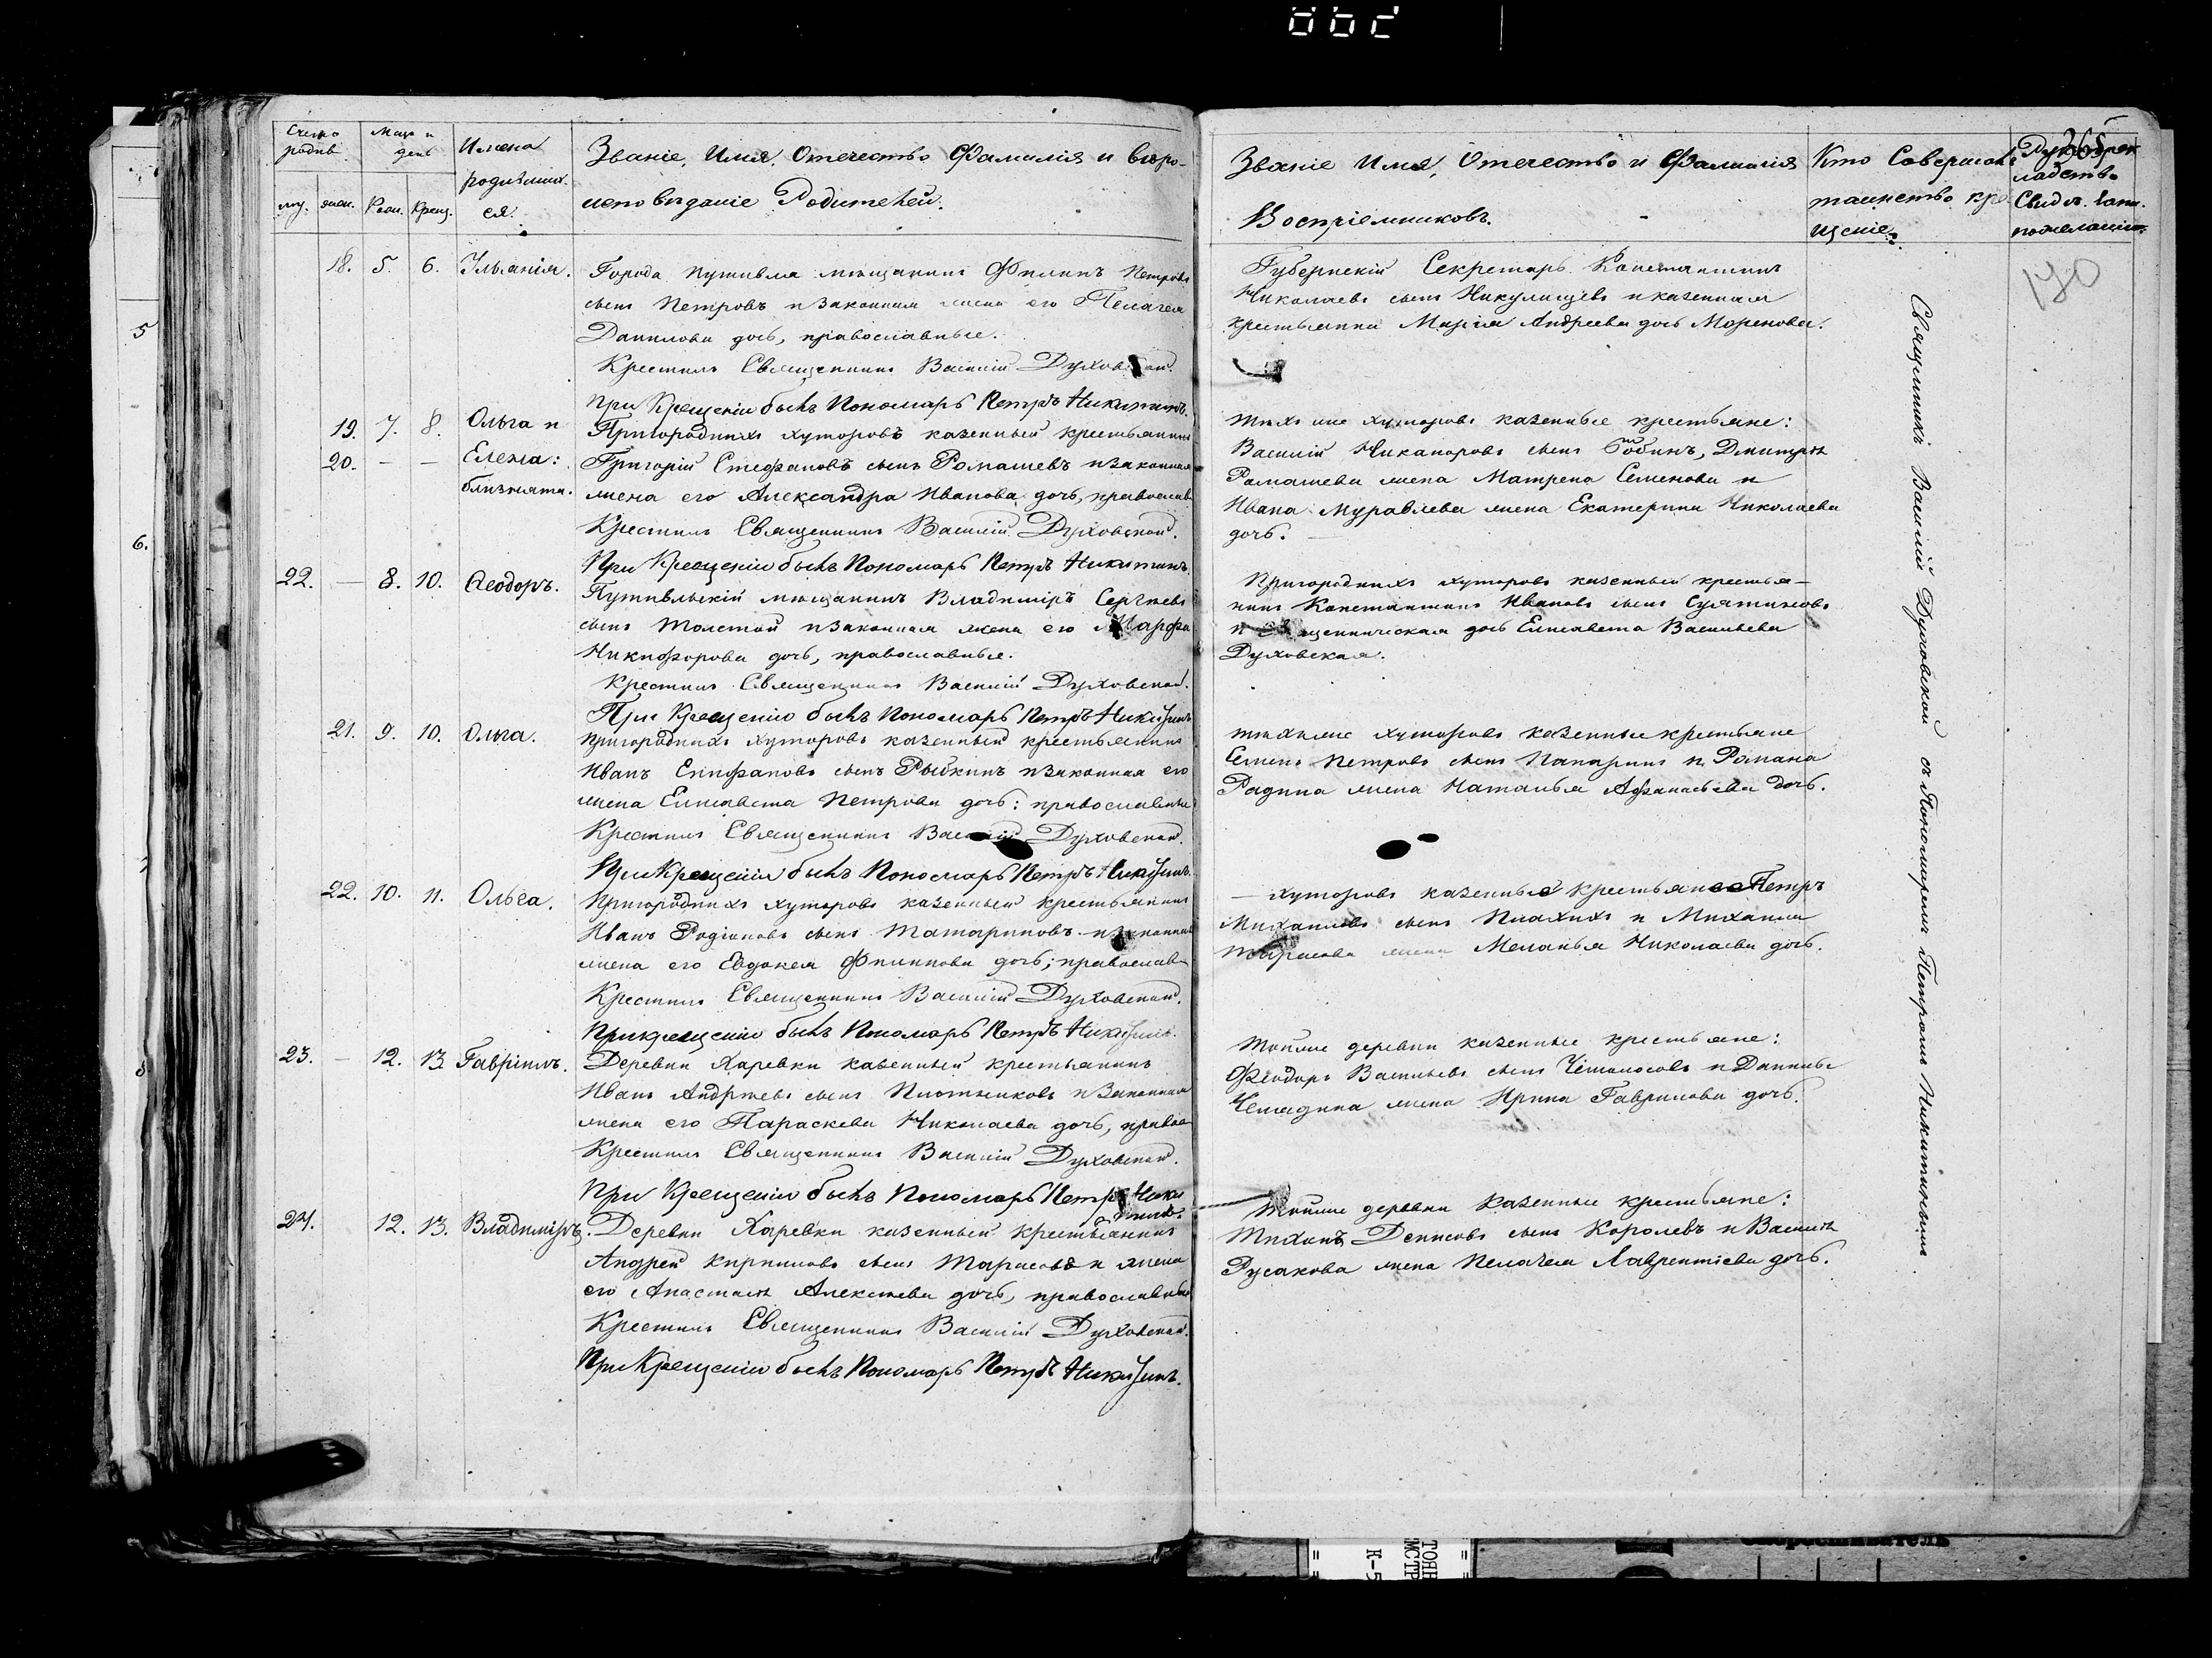 Счетъ родив.
муж. жен.
Мѣсяцъ и день
Рожд. Крещ.
Имена родившихся.
Званіе, Имя, Отечество Фамилія и вѣроисповѣданіе Родителей.
18. 5. 6. Ульянія.
Города Путивля мѣщанинъ Филипъ Петровъ
сынъ Петровъ и законная жена его Пелагея
Данилова дочь, православные.
Крестилъ Священникъ Василій Духовской.
При Крещеніи былъ Пономарь Петръ Никитинъ.
19. 7. 8. Ольга и
20. — — Елена:
близнята.
Пригородныхъ хуторовъ казенный крестьянинъ
Григорій Стефановъ сынъ Ромашевъ и законная
жена его Александра Иванова дочь, православ
Крестилъ Священникъ Василій Духовской.
При Крещеніи былъ Пономарь Петръ Никитинъ.
22. — 8. 10. Ѳеодоръ.
Путивльскій мѣщанинъ Владиміръ Сергѣевъ
сынъ Толстой и законная жена его Марфа
Никифорова дочь, православные.
Крестилъ Священникъ Василій Духовской.
При Крещеніи былъ Пономарь Петръ Никитинъ
21. 9. 10. Ольга.
Пригородныхъ хуторовъ казенный крестьянинъ
Иванъ Епифановъ сынъ Рыбкинъ и законная его
жена Елисавета Петрова дочь: православные
Крестилъ Священникъ Василій Духовской.
При Крещеніи былъ Пономарь Петръ Никитинъ.
22. 10. 11. Ольга.
Пригородныхъ хуторовъ казенный крестьянинъ
Иванъ Родіоновъ сынъ Татариновъ и законная
жена его Евдокея Филипова дочь; православ
Крестилъ Священникъ Василій Духовской.
При крещеніи былъ Пономарь Петръ Никитинъ.
23. — 12. 13. Гавріилъ.
Деревни Харевки казенный крестьянинъ
Иванъ Андрѣевъ сынъ Плотниковъ и законная
жена его Параскева Николаева дочь, правос
Крестилъ Священникъ Василій Духовской.
При Крещеніи былъ Пономарь Петръ Ники
тинъ.
24. 12. 13. Владиміръ.
Деревни Харевки казенный крестьянинъ
Андрей Кириловъ сынъ Тарасовъ и жена
его Анастасія Алексѣева дочь, православные
Крестилъ Священникъ Василій Духовской.
При Крещеніи былъ Пономарь Петръ Никитинъ.
365
Званіе Имя, Отечество и Фамилія
Воспріемниковъ.
Кто Совершалъ
таинство кре
щенія.
Рукоприк
ладство
Свидѣт. запи.
по желанію.
170
Губернскій Секретарь Константинъ
Николаевъ сынъ Никулищевъ и казенная
крестьянка Марія Андреева дочь Моренова.
Тѣхъ же хуторовъ казенные крестьяне:
Василій Никаноровъ сынъ Бобинъ, Дмитрія
Ромашева жена Матрена Семенова и
Ивана Муравлева жена Екатерина Николаева
дочь.
Пригородныхъ хуторовъ казенный крестья-
нинъ Константинъ Ивановъ сынъ
и священническая дочь Елисавета Васильева
Духовская.
Тѣхъ же хуторовъ казенные крестьяне
Семенъ Петровъ сынъ Папаринъ и Романа
Радина жена Наталья Афанасьева дочь.
— хуторовъ казенные крестьяне Петръ
Михаиловъ сынъ Плахихъ и Михаила
Тарасова жена Меланья Николаева дочь.
Той же деревни казенные крестьяне:
Феодоръ Васильевъ сынъ и Данилы
жена Ирина Гаврилова дочь.
Той же деревни казенные крестьяне:
Тихонъ Денисовъ сынъ Королевъ и Василія
Русакова жена Пелагея Лаврентіева дочь.
Священникъ Василій Духовской съ Пономаремъ Петромъ Никитинымъ